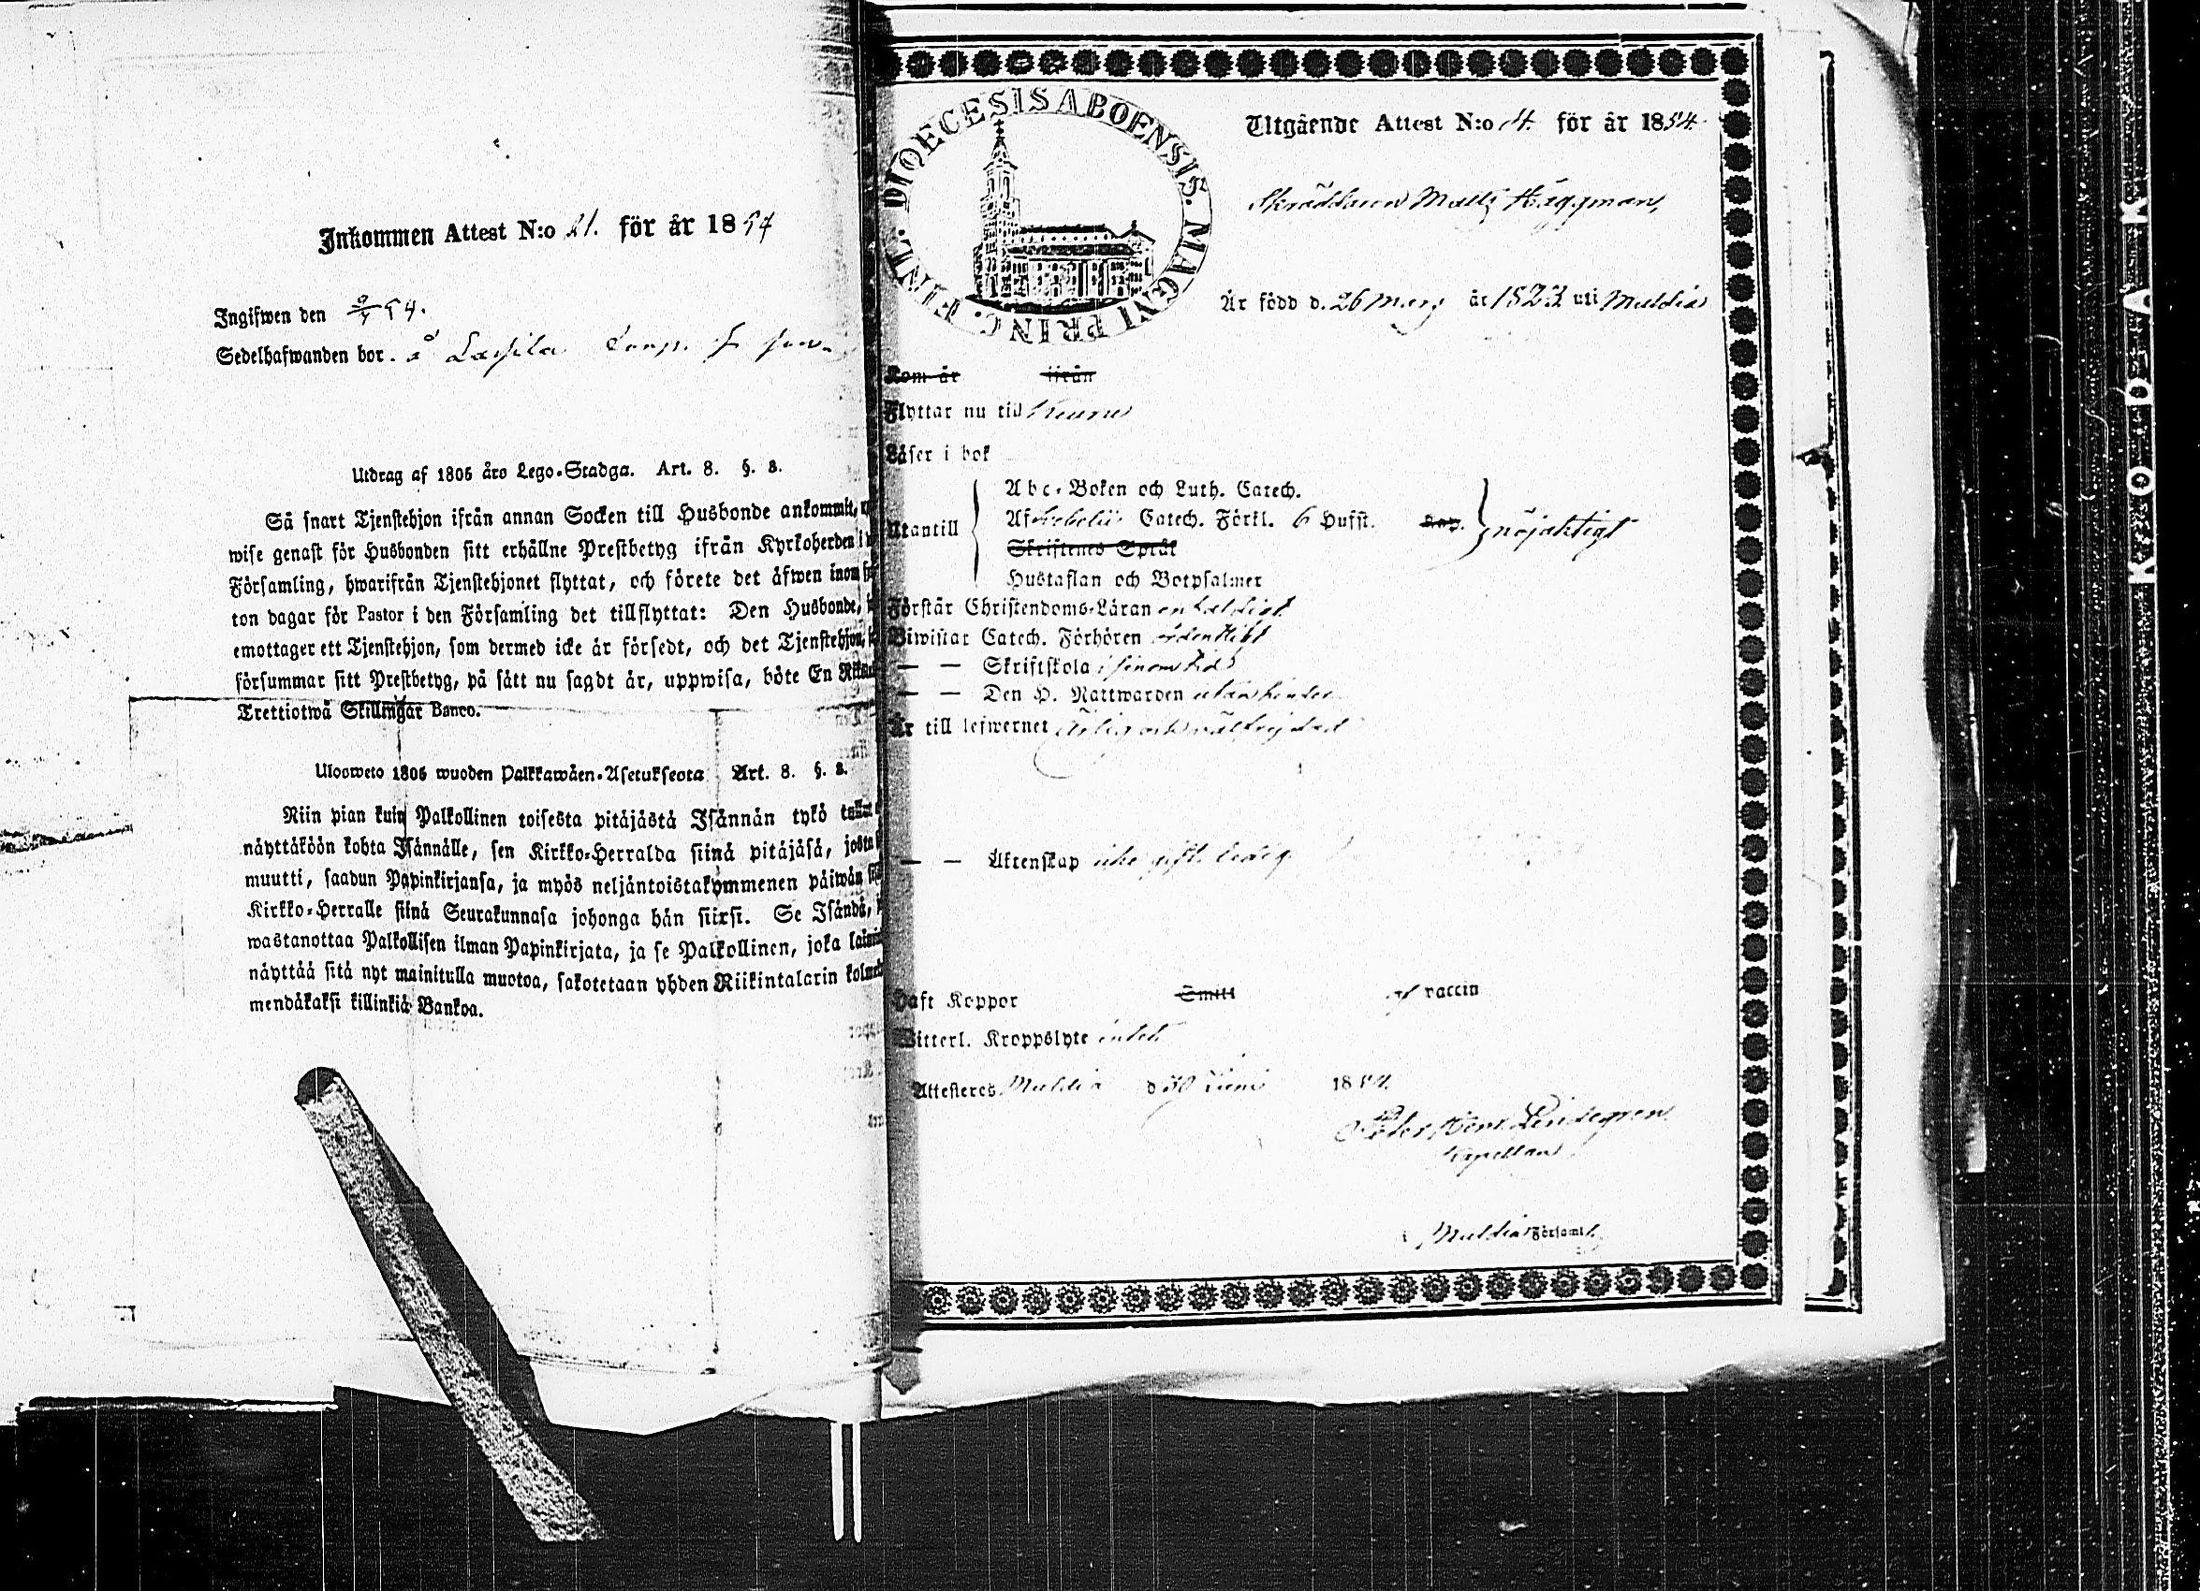 Inkommen Attest N:o 21. för år 1854
Ingifwen den 9/7 54.
Sedelhafwanden bor. å Lassila
Utdrag af 1805 års Lego-Stadga. Art. 8. §. 3.
Så snart Tjenstehjon ifrån annan Socken till Husbonde ankommit,
wise genast för Husbonden sitt erhållne Prestbetyg ifrån Kyrkoherden i
Församling, hwarifrån Tjenstehjonet flyttat, och förete det äfwen inom
ton dagar för Pastor i den Församling det tillflyttat: Den Husbonde,
emottager ett Tjenstehjon, som dermed icke är försedt, och det Tjenstehjon,
försummar sitt Prestbetyg, på sätt nu sagdt är, uppwisa, böte En
Trettiotwå Skillingar Banco.
Ulosweto 1805 wuoden Palkkawäen-Asetuksesta Art. 8. §. 3.
Niin pian kuin Palkollinen toisesta pitäjästä Isännän tykö
näyttäköön kohta Isännälle, sen Kirkko-Herralda siinä pitäjäsä, josta
muutti, saadun Papinkirjansa, ja myös neljäntoistakymmenen päiwän
Kirkko-Herralle siinä Seurakunnasa johonga hän siirsi. Se Isändä,
wastanottaa Palkollisen ilman Papinkirjata, ja se Palkollinen, joka
näyttää sitä nyt mainitulla muotoa, sakotetaan yhden Riikintalarin
mendäkaksi killinkiä Bankoa.
DIOECESIS ABOENSIS. MAGNI PRINC. FINL.
Utgående Attest N:o 4. för år 1854.
Skräddaren Matts Häggman,
Är född d. 26 Mars år 1823 uti Muldia
Kom år ifrån
Flyttar nu till Keuru
Läser i bok
Utantill
Abc-Boken och Luth. Catech.
Af Catech. Förkl. 6 Hufst. Cap. nöjaktigt
Skriftenes Språk
Hustaflan och Botpsalmer
Förstår Christendoms-Läran enfaldigt
Biwistar Catech. Förhören ordentligt
— — Skriftskola i sinom tid
— — Den H. Nattwarden utan hinder
Är till lefwernet Ärlig och välfrejdad
— — Äktenskap icke gift. ledig
Haft Koppor Smitt af vaccin
Witterl. Kroppslyte intet
Attesteras Muldia d 30 Juni 1854.
Peter Lindegren
Kapellan
i Muldia Församl.
KODAK